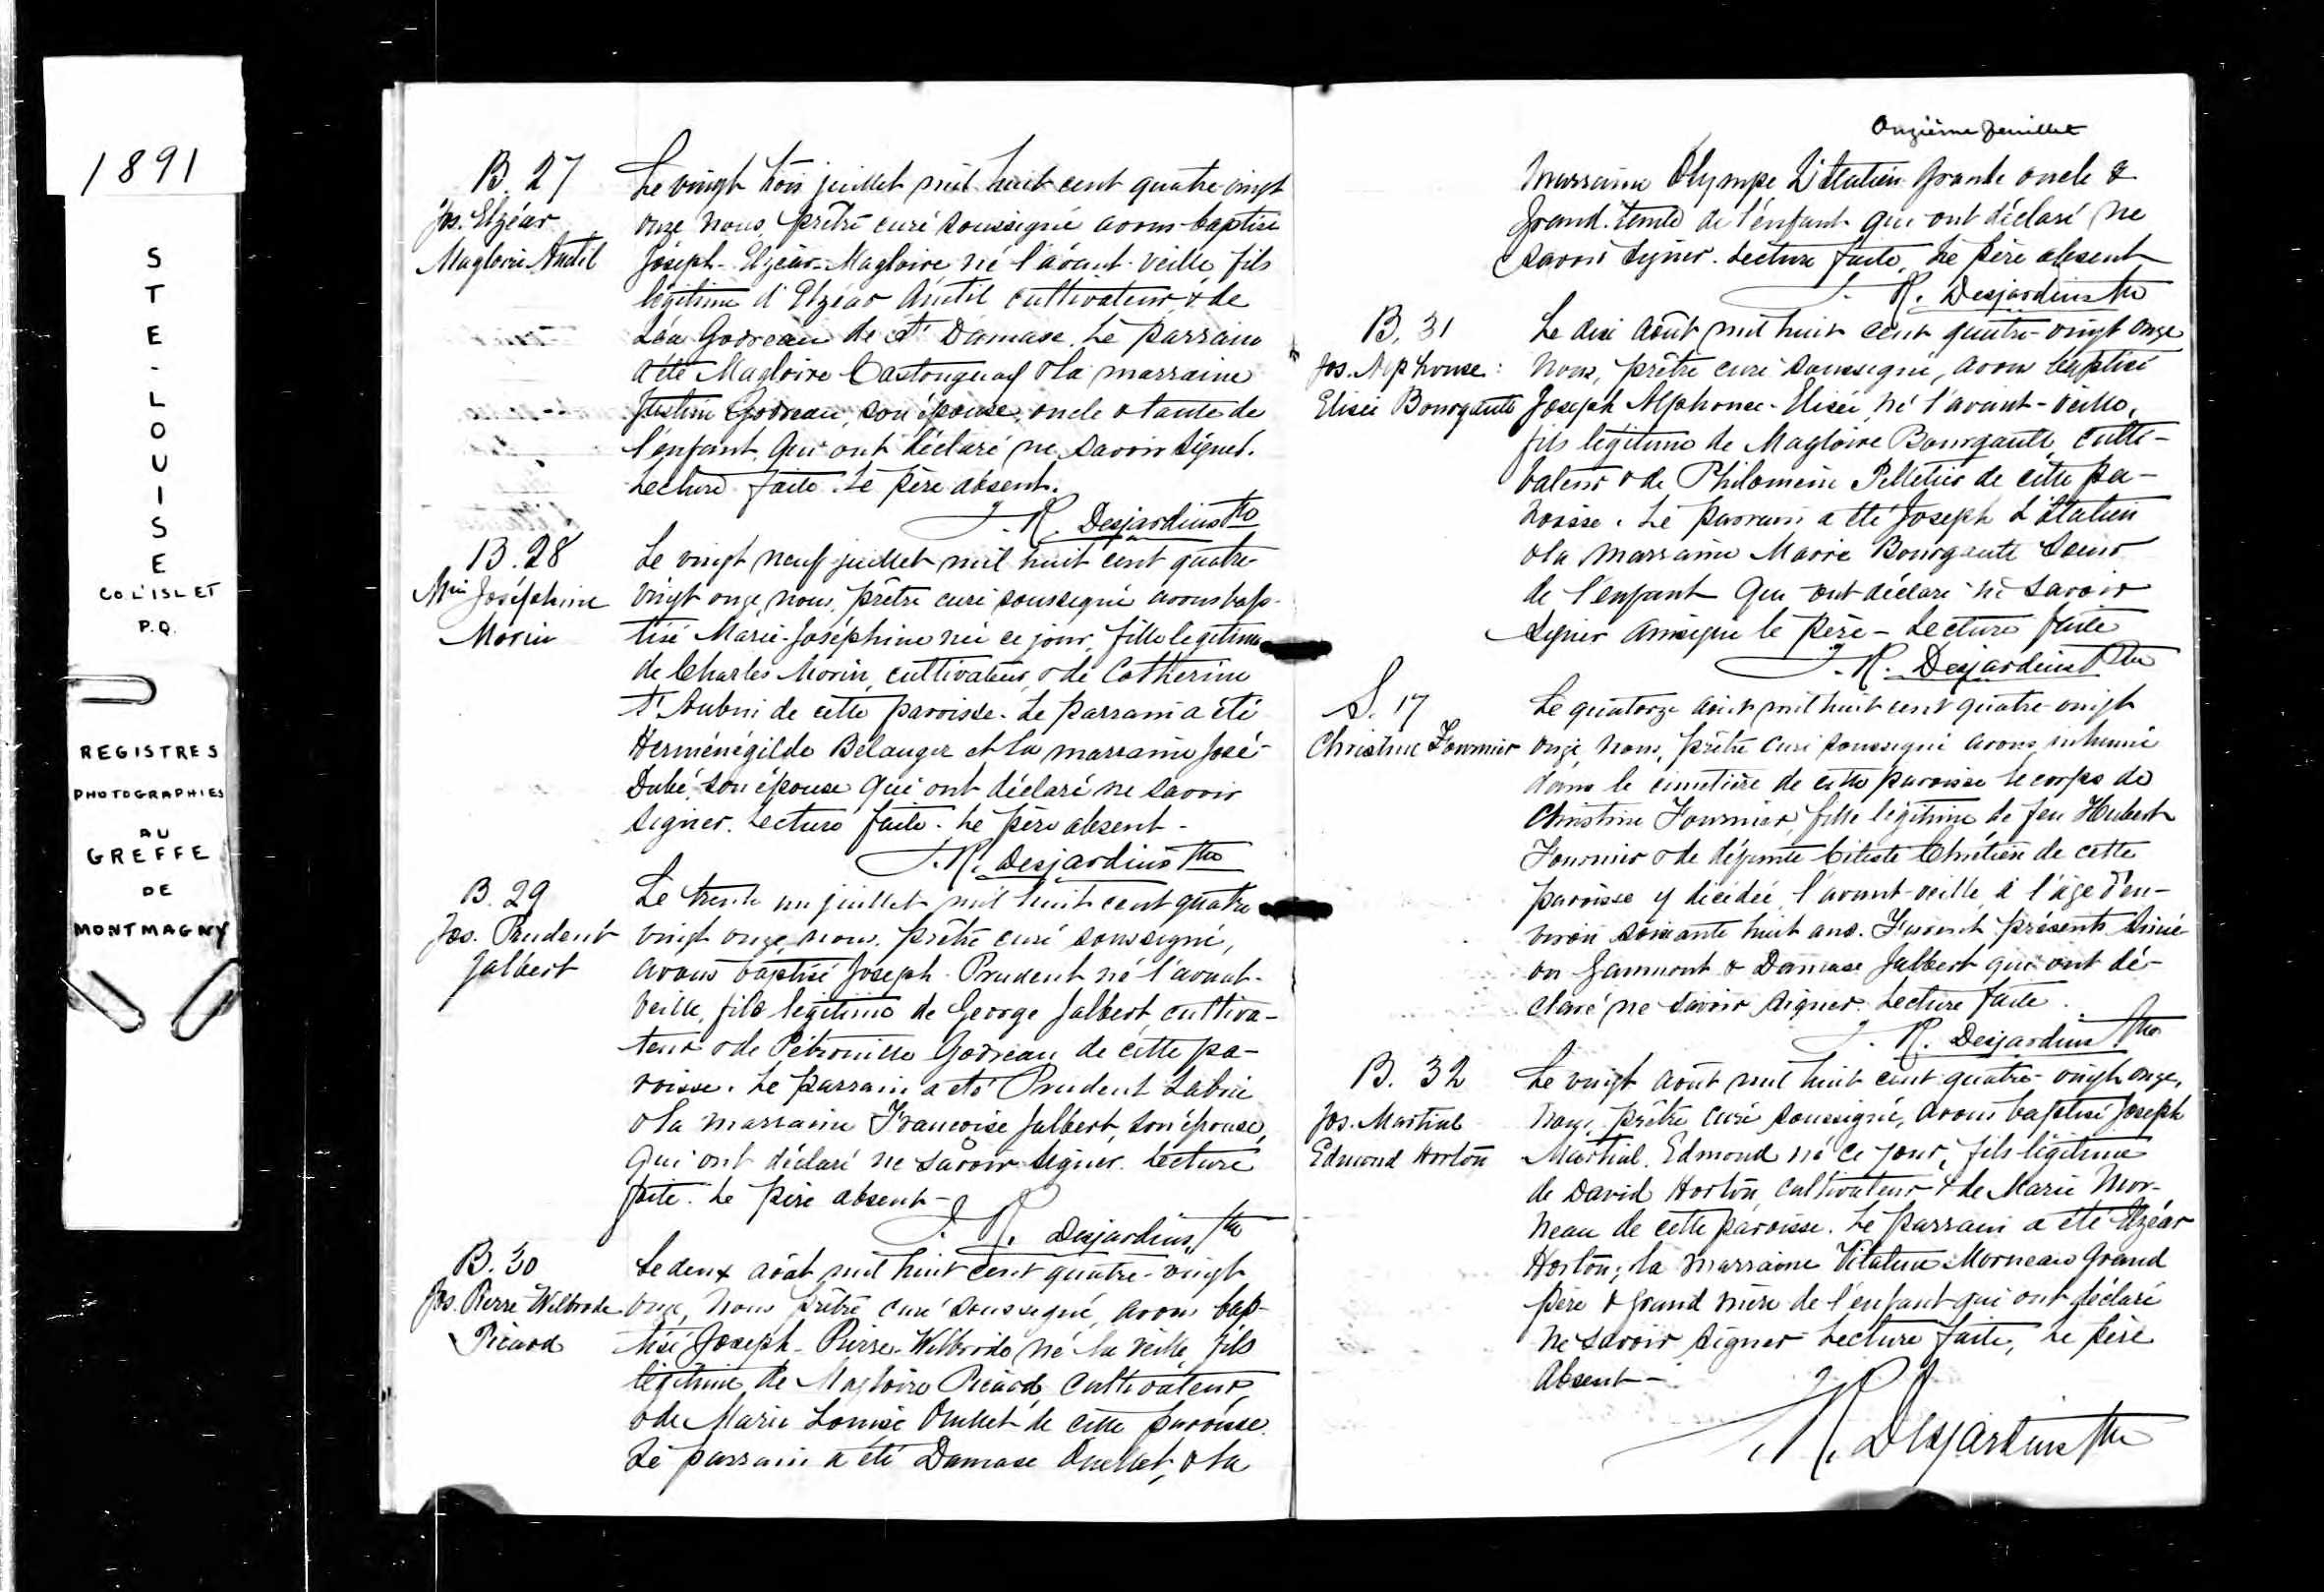 1891
STE-LOUISE
CO L'ISLET
P.Q.
REGISTRES
PHOTOGRAPHIES
AU
GREFFE
DE
MONTMAGNY
B. 27
Jos. Elzéar
Magloire Anctil
Le vingt trois juillet mil huit cent quatre vingt
onze nous, prêtre curé soussigné avons baptisé
Joseph-Elzéar-Magloire né l'avant-veille, fils
légitime d'Elzéar Anctil cultivateur & de
Léa Godreau de St Damase. Le parrain
a été Magloire Castonguay & la marraine
Justine Godreau, son épouse, oncle & tante de
l'enfant, qui ont déclaré ne savoir signer.
Lecture faite. Le père absent.
J. R. Desjardins Ptre
B. 28
Mie Joséphine
Morin
Le vingt neuf juillet mil huit cent quatre
vingt onze, nous, prêtre curé soussigné avons bap-
tisé Marie-Joséphine née ce jour, fille legitime
de Charles Morin, cultivateur, & de Catherine
St Aubin de cette paroisse. Le parrain a été
Herménégilde Bélanger et la marraine José-
Dubé, son épouse qui ont déclaré ne savoir
signer. Lecture faite. Le père absent-
J. R. Desjardins Ptre
B. 29
Jos. Prudent
Jalbert
Le trente un juillet mil huit cent quatre
vingt onze, nous, prêtre curé soussigné,
avons baptisé Joseph-Prudent né l'avant-
veille, fils légitime de George Jalbert, cultiva-
teur & de Pétronille Godreau de cette pa-
roisse. Le parrain a été Prudent Labrie
& la marraine Françoise Jalbert, son épouse,
qui ont déclaré ne savoir signer. Lecture
faite. Le père absent-
J. R. Desjardins, Ptre
B. 30
Jos. Pierre Wilbrode
Picard
Le deux août mil huit cent quatre-vingt
onze, nous prêtre curé soussigné, avons bap-
tisé Joseph-Pierre-Wilbrode né la veille, fils
légitime de Magloire Picard, cultivateur,
& de Marie Louise Ouellet de cette paroisse.
Le parrain a été Damase Ouellet, & la
Onzième feuillet
marraine Olympe L'Italien Grande oncle &
Grand. tante de l'enfant qui ont déclaré ne
savoir signer. Lecture faite, Le père absent
J. R. Desjardins Ptre
B. 31
Jos. Alphonse:
Elisée Bourgault
Le dix août mil huit cent quatre-vingt onze
nous, prêtre curé soussigné, avons baptisé
Joseph Alphonse-Elisée, né l'avant-veille,
fils légitime de Magloire Bourgault, culti-
vateur & de Philomène Pelletier de cette pa-
roisse. Le parrain a été Joseph L'Italien
& la marraine Marie Bourgault soeur
de l'enfant qui ont déclaré ne savoir
signer ainsi que le père- Lecture faite
J. R. Desjardins Ptre
S. 17
Christine Fournier
Le quatorze août mil huit cent quatre-vingt
onze, nous, prêtre curé soussigné avons inhumé
dans le cimetière de cette paroisse le corps de
Christine Fournier, fille légitime de feu Hubert
Fournier & de défunte Céleste Chrétien de cette
paroisse y décédée, l'avant-veille, à l'âge d'en-
viron soixante huit ans. Furent présents Simé-
on Gaumont & Damase Jalbert qui ont dé-
claré ne savoir signer. Lecture faite.
J. R. Desjardins Ptre
B. 32
Jos. Martial
Edmond Horton
Le vingt août mil huit cent quatre-vingt onze,
nous, prêtre curé soussigné, avons baptisé Joseph
Martial. Edmond né ce jour, fils légitime
de David Horton, cultivateur & de Marie Mor-
neau de cette paroisse. Le parrain a été Elzéar
Horton; la marraine Vitaline Morneau Grand
père & grand mère de l'enfant qui ont déclaré
ne savoir signer Lecture faite, Le père
Absent-
J. R. Desjardins Ptre